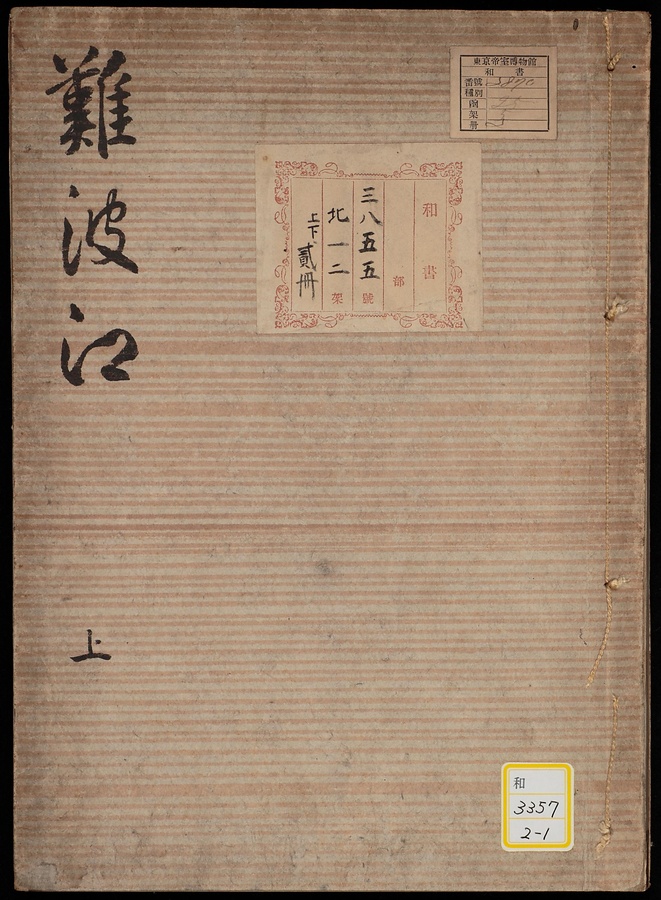 難波江
上
東京帝室博物館
和書
番號
種別
函
架
册
和書
部
三八五五號
北一二架
上下貳冊
和
3357
2-1